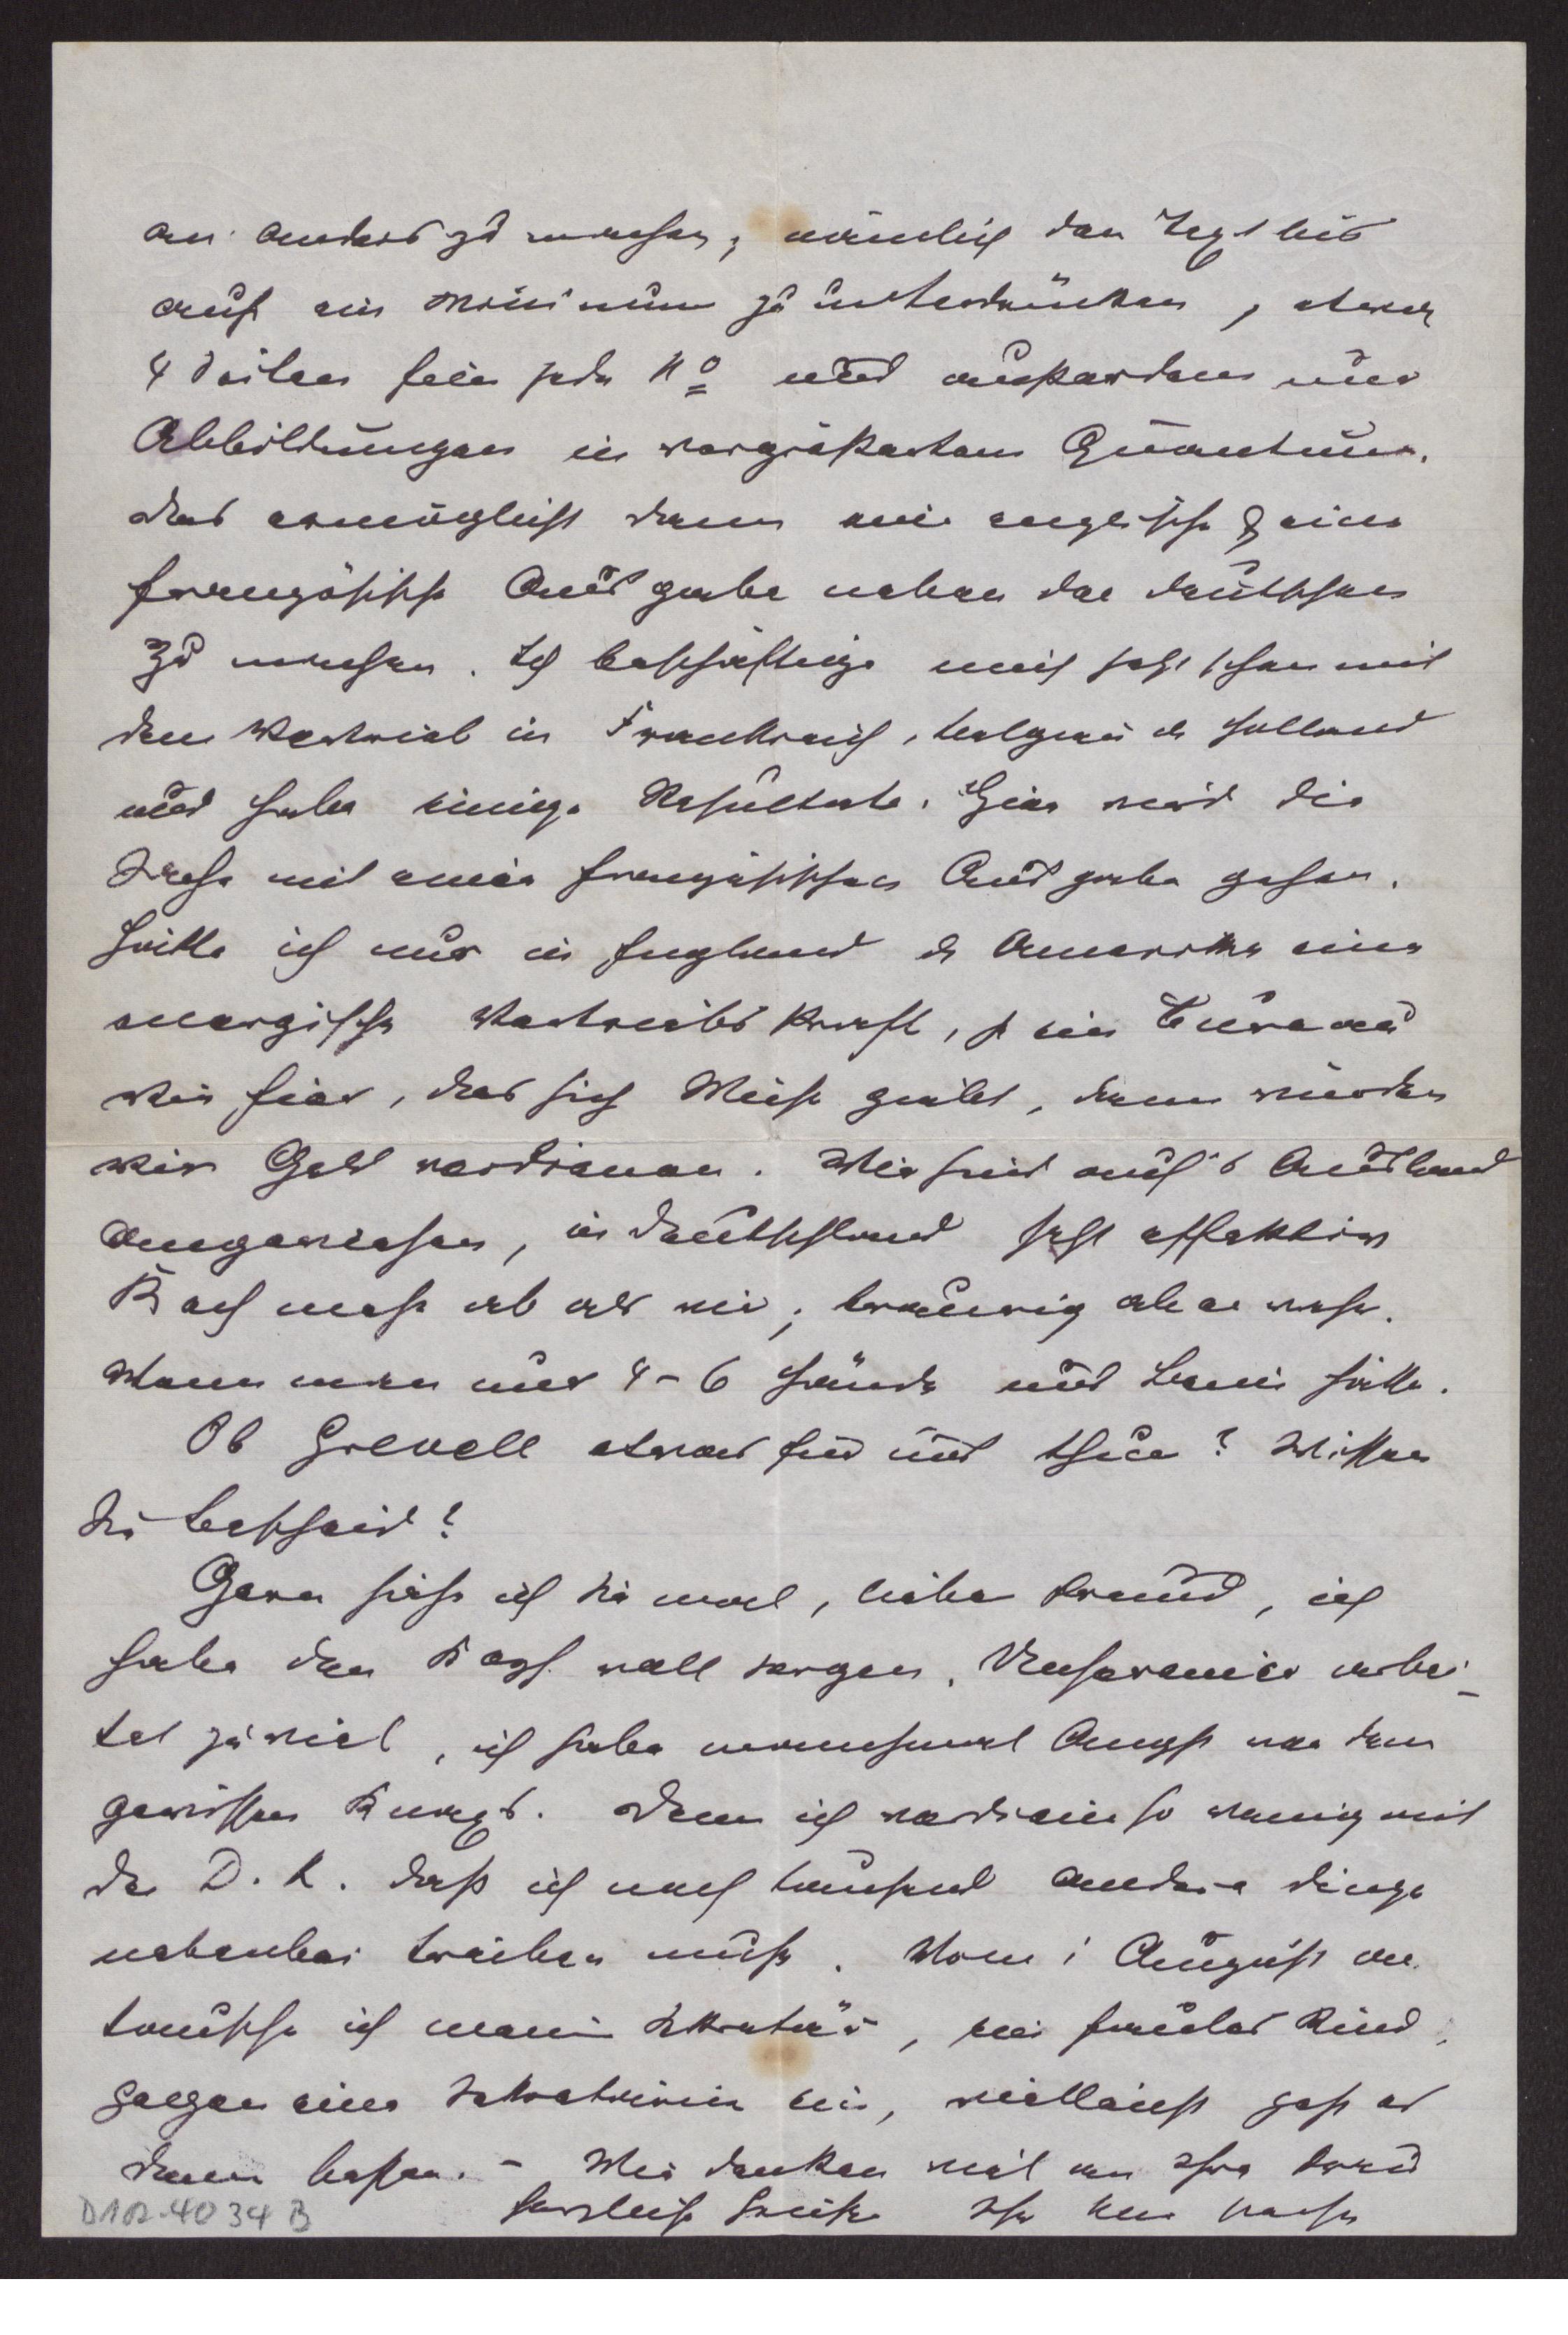 an anders zu machen, nämlich den Text bis
auf ein Minimum zu unterdrücken, etwa
4 Seiten fein jede No und ausserdem nur
Abbildungen in vergrössertem Quantum.
Das ermöglicht dann eine englische & eine
französische Ausgabe neben der deutschen
zu machen. Ich beschäftige mich jetzt schon mit
dem Vertrieb in Frankreich, Belgien & Holland
und habe einige Resultate. Hier wird die
Sache mit einer französischen Ausgabe gehen.
Hätte ich nur in England & Amerika eine
energische Vertriebskraft, ein Bureau
wie hier, das sich Mühe giebt, dann würden
wir Geld verdienen. Wir sind auf's Ausland
angewiesen, in Deutschland fasst effektiv
Koch mehr ab als wir; traurig aber wahr.
Wenn man nur 4-6 Hände und Beine hätte.
Ob Grevell etwas für uns thun? Wissen
Sie Bescheid?
Gern sähe ich Sie mal, lieber Freund, ich
habe den Kopf voll Sorgen. Unsereiner arbei-
tet zuviel, ich habe manchmal Angst vor dem
gewissen Knax. Denn ich verdiene so wenig mit
der D. K. dass ich noch tausend andere Dinge
nebenbei treiben muss. Vom 1 August an
tausche ich mein Sekretär, ein faules Kind,
gegen eine Sekretärin ein, vielleicht geht es
dann besser. - Wir denken viel an Ihre Frau
herzliche Grüsse Ihr
D102.4034 B